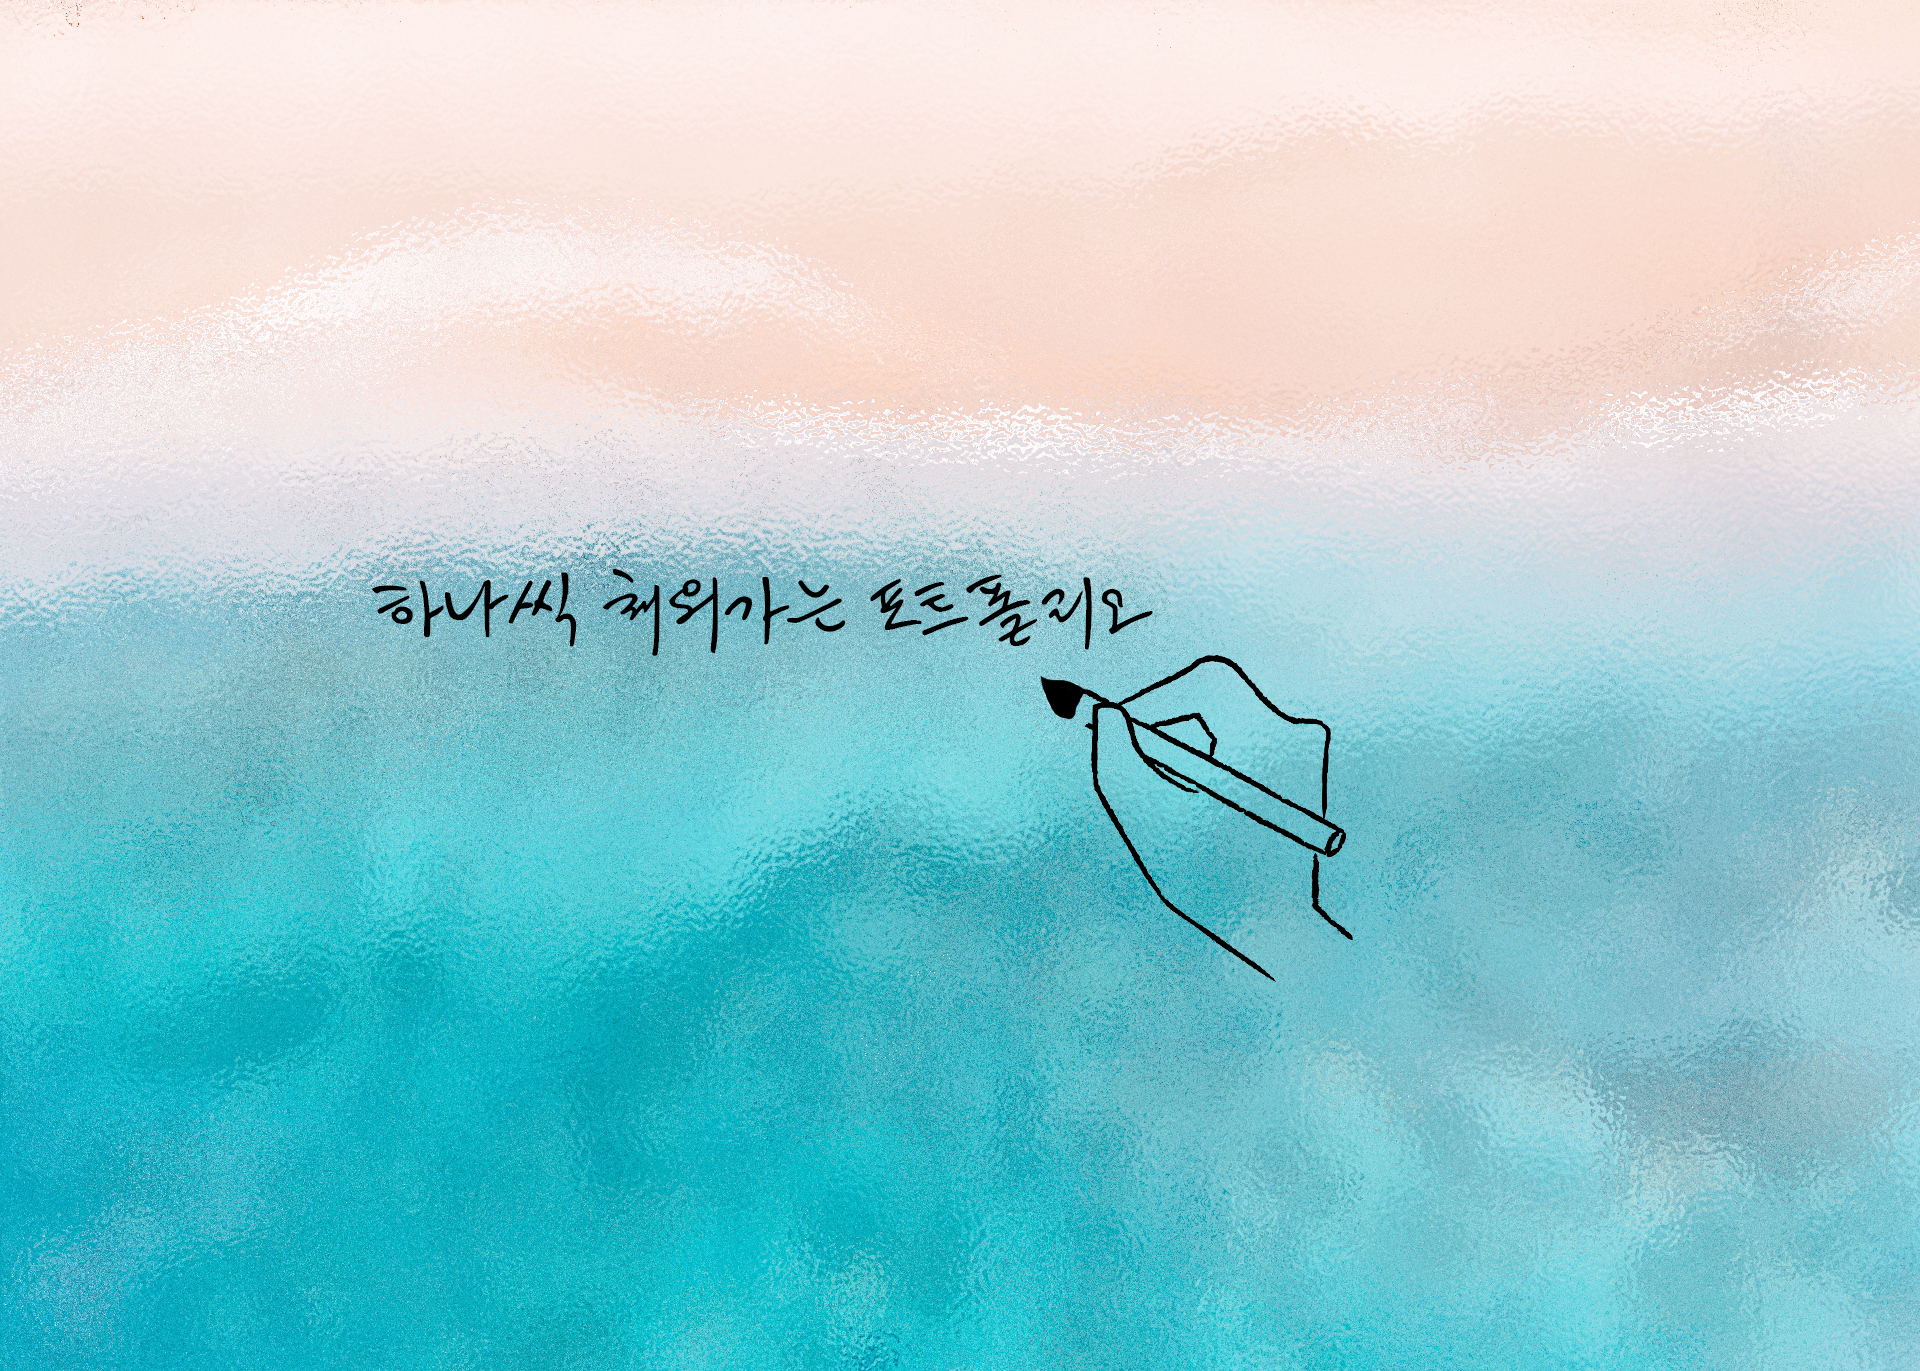 하나씩 채워가는 포트폴리오